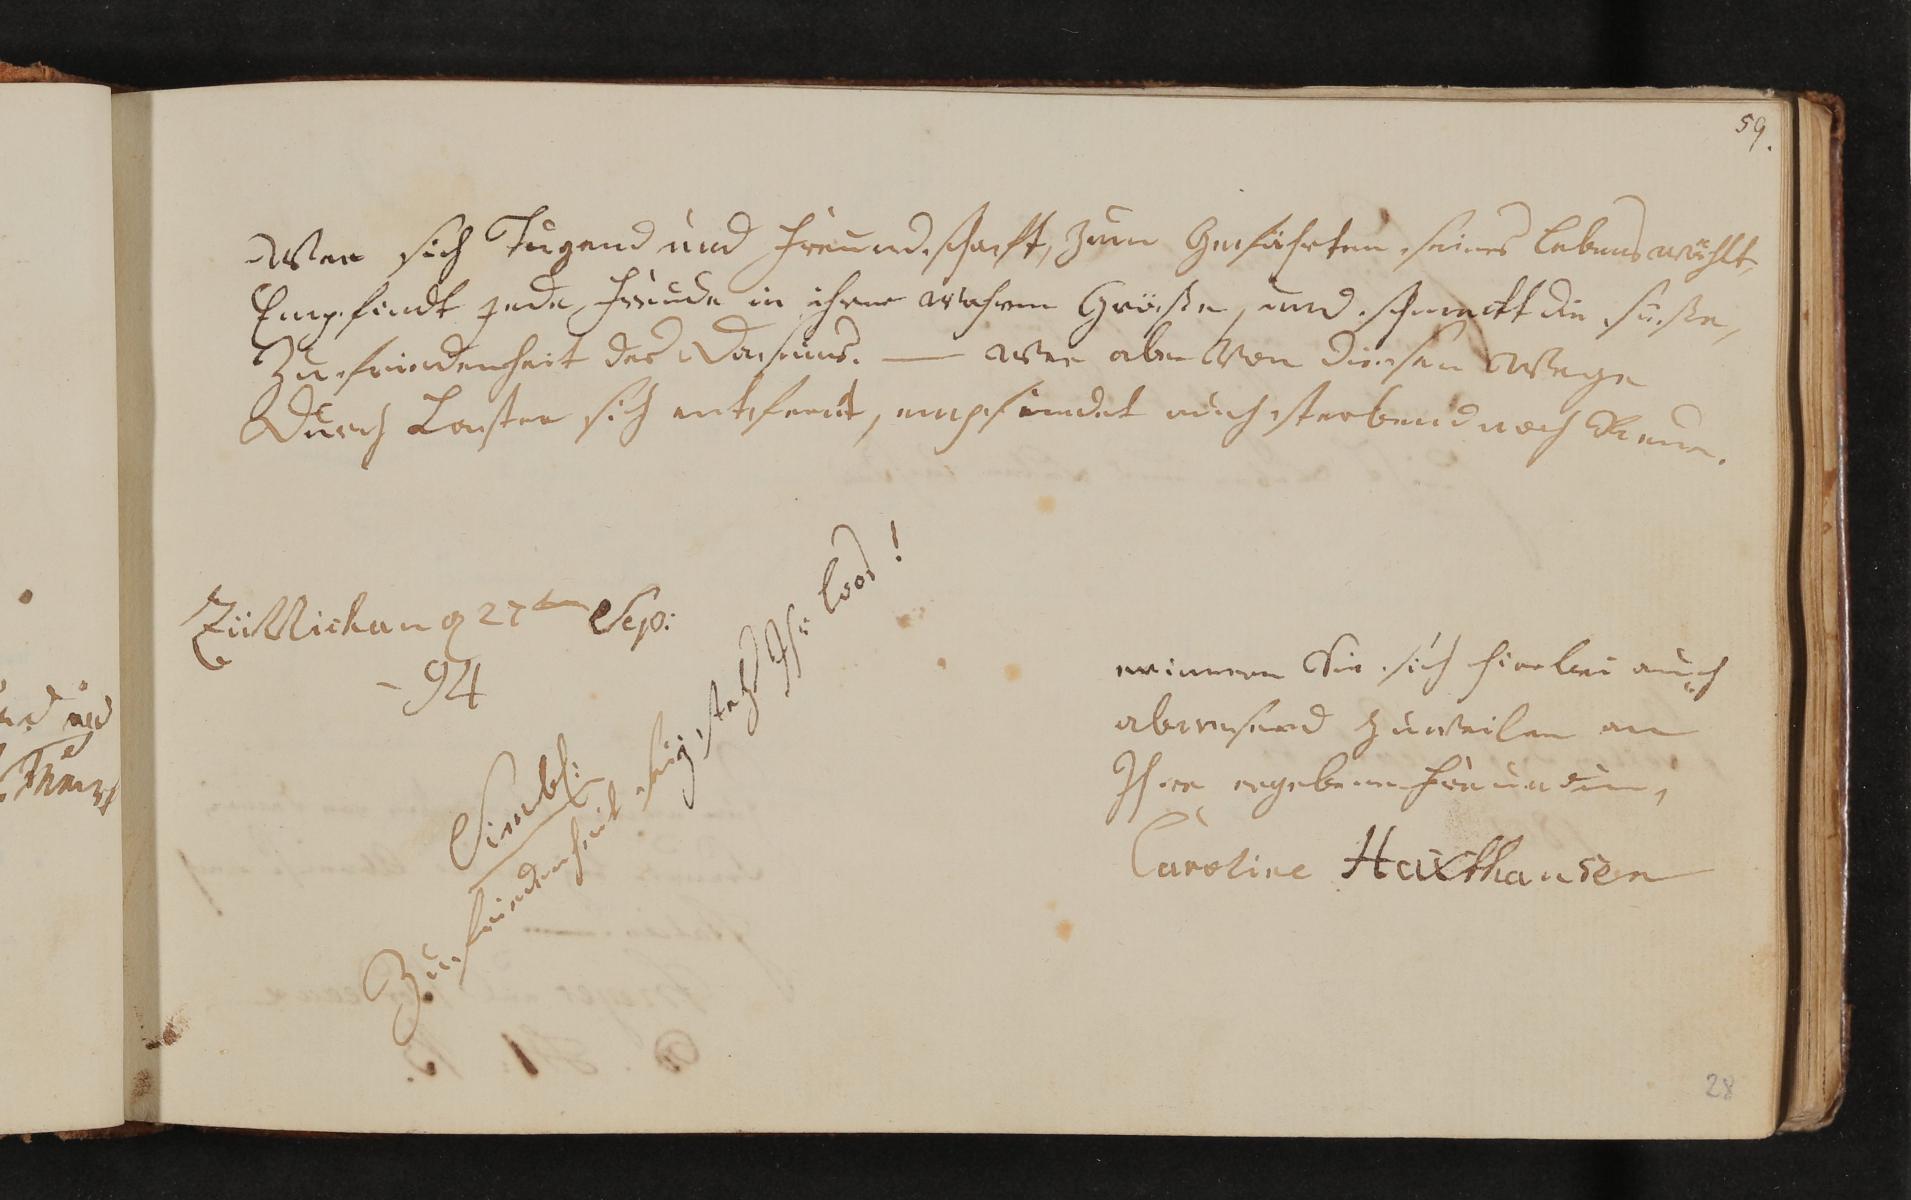 59.
Wer sich Tugend und Freundschaft, zum Gefährten seines Lebens wählt,
Empfindt jede Freude in ihrer wahren Größe, und schmeckt die süße,
Zufriedenheit des Daseins. — Wer aber von diesen Wege
Durch Laster sich entfernt, empfindet auch sterbend noch Reue.
Züllichau d 27ten Sep:
- 94
Simbl:
Zufriedenheit sey stets Ihr Loos!
erinnern Sie sich hierbei auch
abwesend zuweilen an
Ihre ergebene Freundin,
Caroline Haxthausen
28